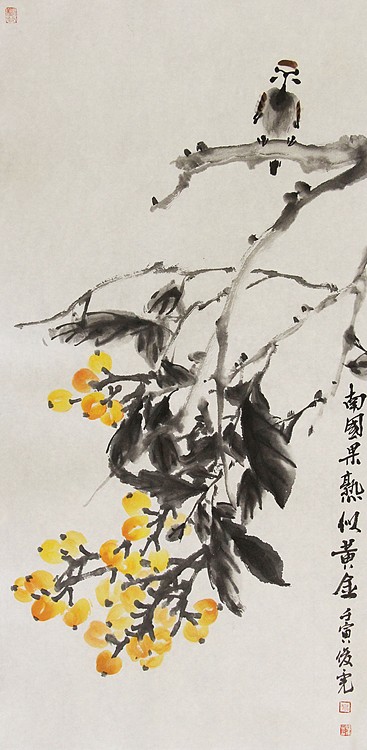 南國果熟似黄金
壬寅俊亮